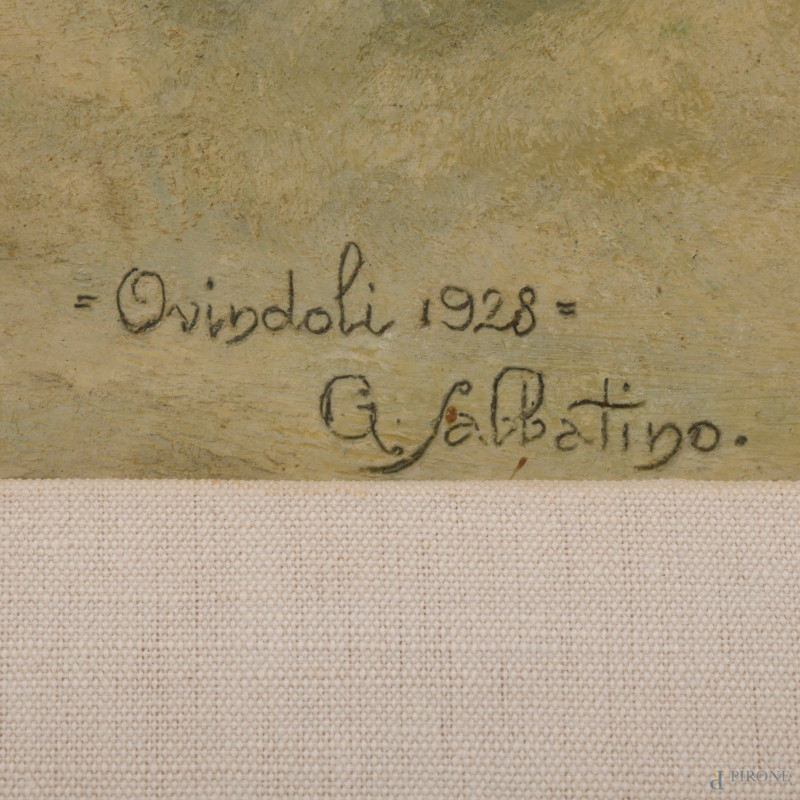 = Ovindoli 1928 =
G. Sabbatino.
PIRONE